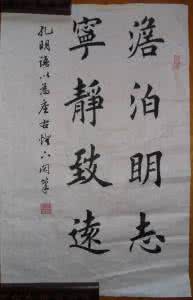 澹泊明志
寧靜致遠
孔明語以為座右銘